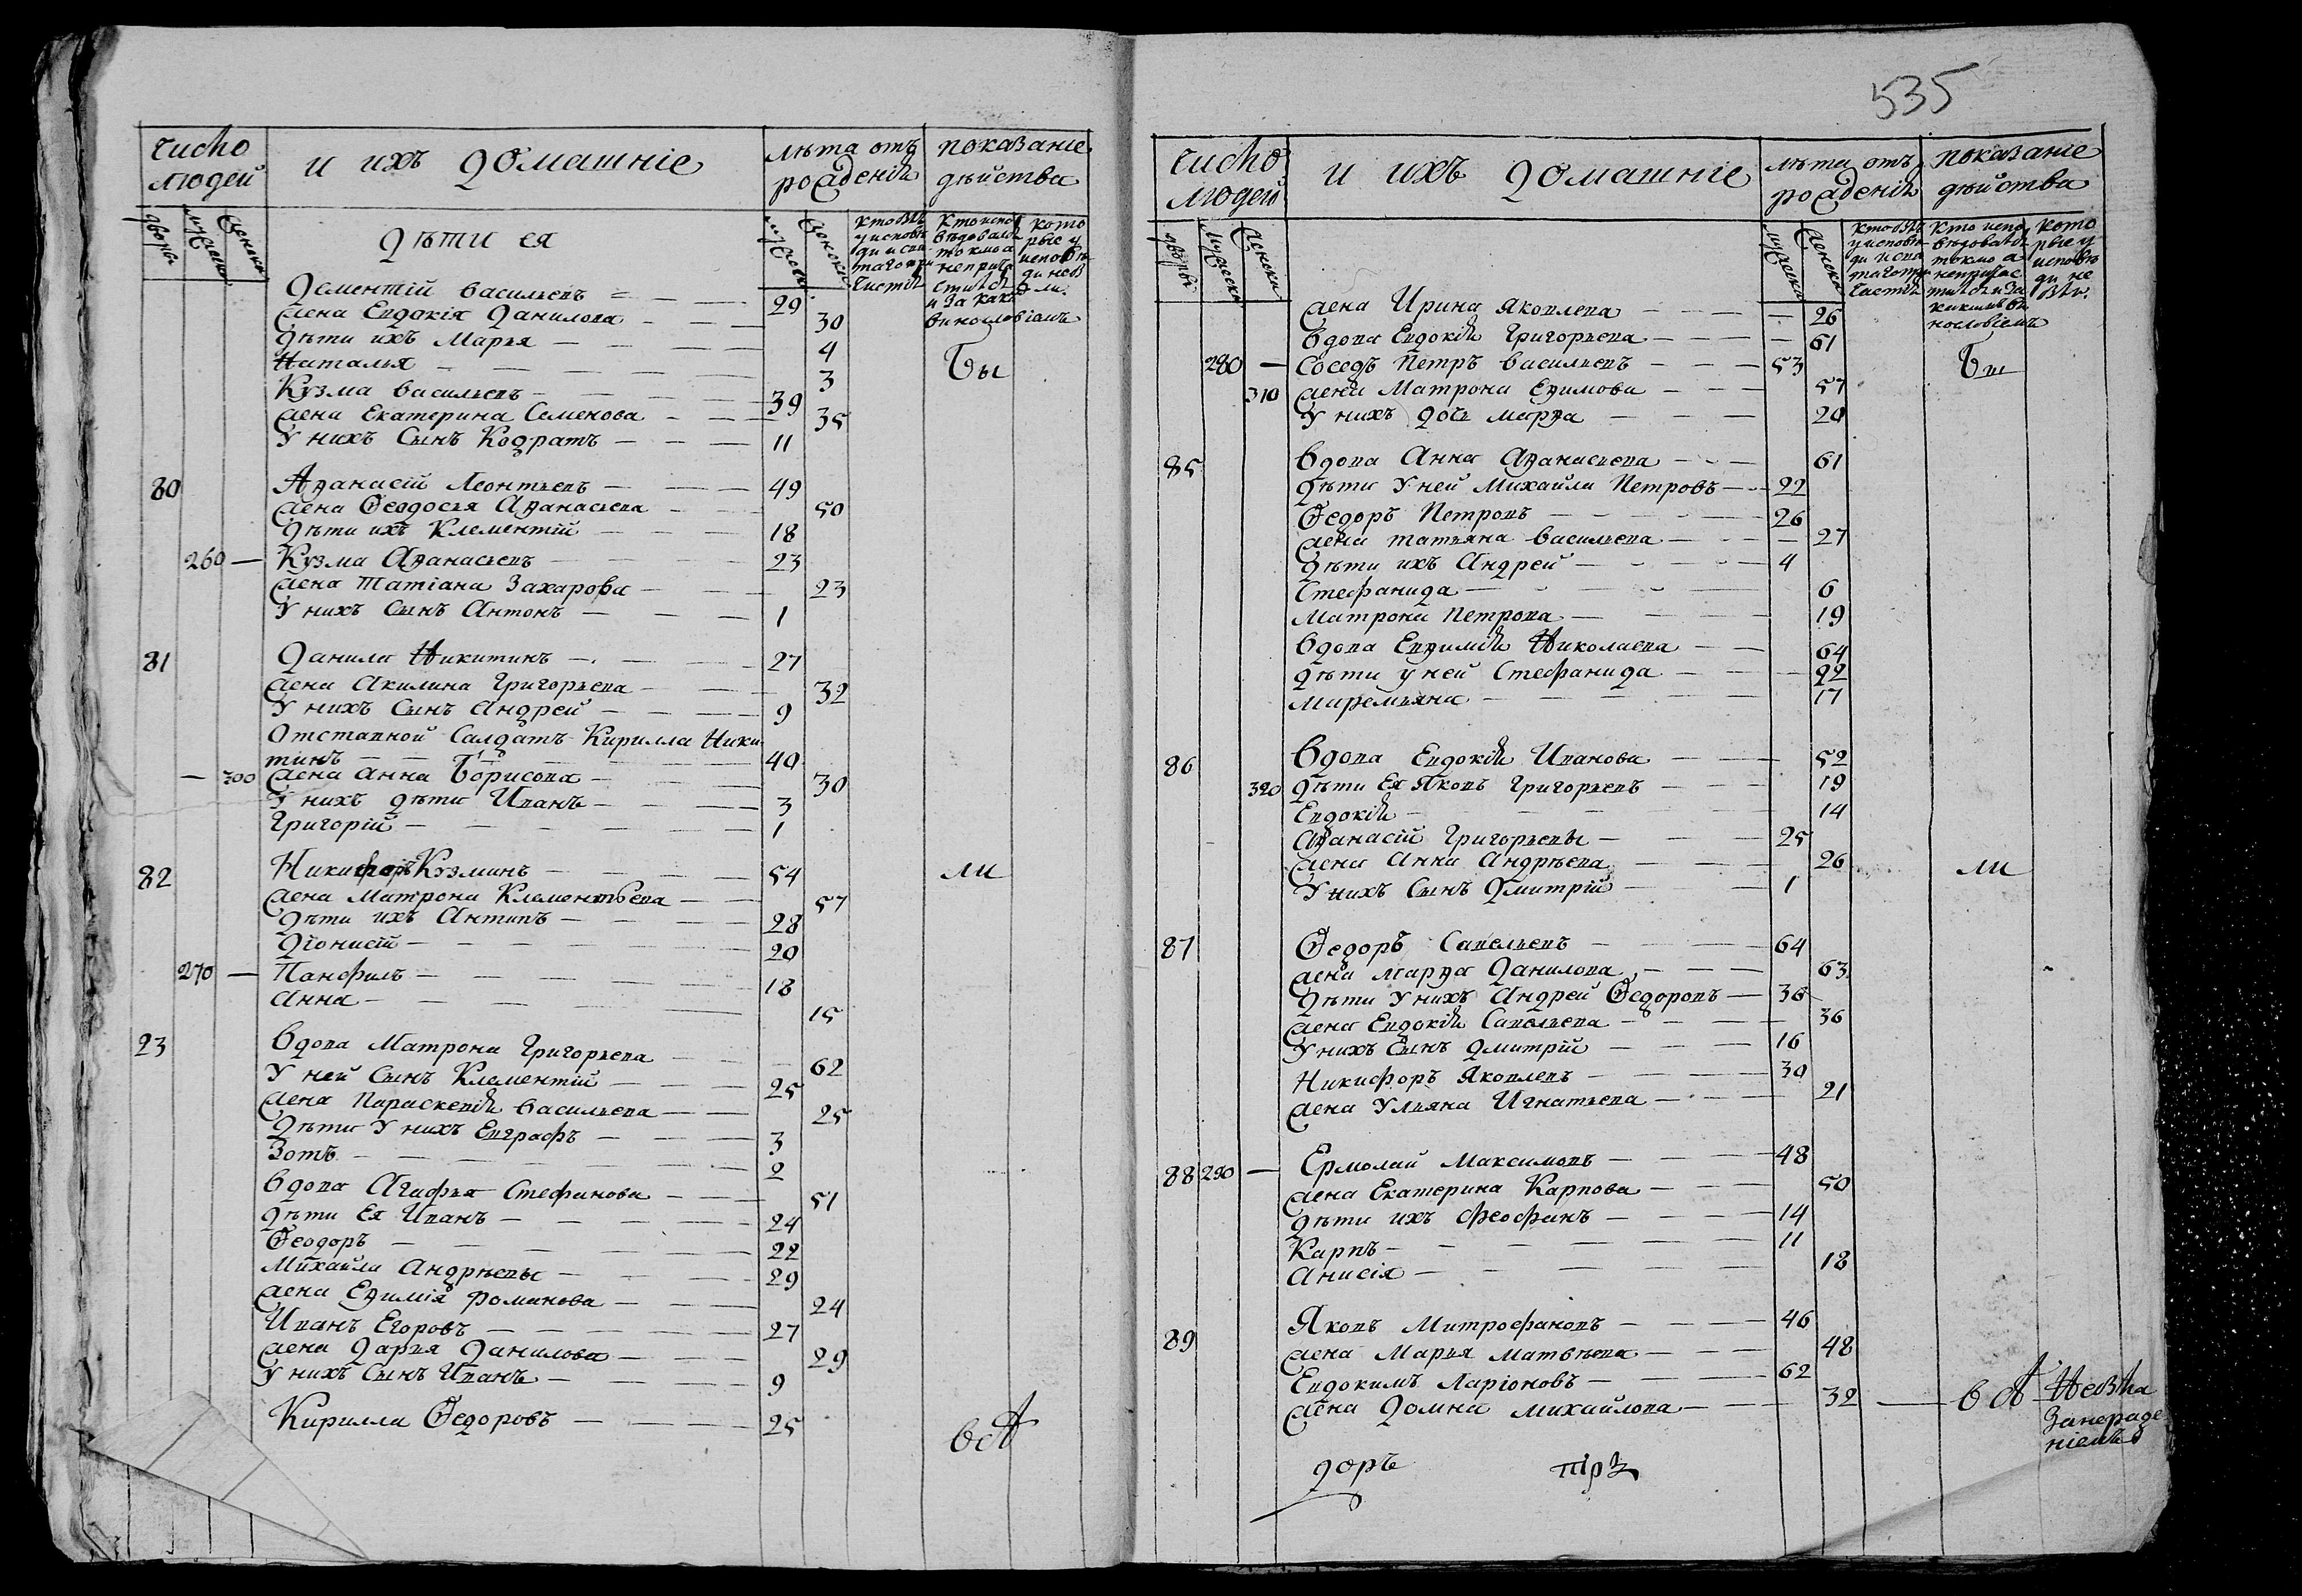 число людей
и ихъ домашніе
лѣта отъ рожденія
показаніе дѣйства
дворы
мужеска
женска
дѣти ея
мужеска
женска
кто былъ у исповѣди и св. таго причастія
кто исповѣдовался токмо а не причастился и за какимъ винословіемъ
которые у исповѣди не были
Дементій Васильевъ 29
жена Евдокія Данилова 30
дѣти ихъ Марья 4
Наталья 3
Кузма Васильевъ 39
жена Екатерина Семенова 35
У нихъ Сынъ Кодратъ 11
Бы
80 Афанасій Леонтьевъ 49
жена Ѳеодосья Афанасьева 50
дѣти ихъ Клементій 18
260 Кузма Афанасьевъ 23
жена Татіана Захарова 23
У нихъ Сынъ Антонъ 1
81 Данила Никитинъ 27
жена Акилина Григорьева 32
У нихъ Сынъ Андрей 9
Отставной Салдатъ Кирилла Ники
тинъ 40
300 жена Анна Борисова 30
У нихъ дѣти Иванъ 3
Григорій 1
82 Никифоръ Кузминъ 54
ли
жена Матрона Клементьева 57
дѣти ихъ Антипъ 28
Діонисій 20
270 Панфилъ 18
Анна 15
23 Вдова Матрона Григорьева 62
У ней Сынъ Клементій 25
жена Параскевія Васильева 25
Дѣти У нихъ Евграфъ 3
Зотъ 2
Вдова Агафья Стефанова 51
дѣти Ея Иванъ 24
Ѳеодоръ 22
Михайла Андрѣевы 29
жена Ефимія Романова 24
Иванъ Егоровъ 27
жена Дарья Данилова 29
У нихъ Сынъ Иванъ 9
Кирилла Ѳедоровъ 25
всѣ
535
число людей
и ихъ домашніе
лѣта отъ рожденія
показаніе дѣйства
дворы
мужеска
женска
мужеска
женска
кто былъ у исповѣди и свя таго при частія
кто испо вѣдовался токмо а непричас тился и за какимъ ви нословіемъ
кото рые у исповѣ ди не бы.
жена Ирина Яковлева 26
Вдова Евдокія Григорьева 61
280 Соседъ Петръ Васильевъ 53
Бы
310 жена Матрона Ефимова 57
У нихъ дочь Марфа 20
85 Вдова Анна Афанасьева 61
дѣти У ней Михайла Петровъ 22
Ѳедоръ Петровъ 26
жена Татьяна Васильева 27
дѣти ихъ Андрей 4
Стефанида 6
Матрона Петрова 19
Вдова Евфимія Николаева 64
дѣти у ней Стефанида 22
Маремьяна 17
86 Вдова Евдокія Иванова 52
320 дѣти Ея Яковъ Григорьевъ 19
Евдокія 14
Афанасій Григорьевы 25
жена Анна Андрѣева 26
ли
У нихъ Сынъ Дмитрій 1
87 Ѳедоръ Савельевъ 64
жена Марфа Данилова 63
дѣти У нихъ Андрей Ѳедоровъ 36
жена Евдокія Савельева 36
У нихъ Сынъ Дмитрій 16
Никифоръ Яковлевъ 30
жена Ульяна Игнатьева 21
88 290 Ермолай Максимовъ 48
жена Екатерина Карпова 50
дѣти ихъ Феофанъ 14
Карпъ 11
Анисія 18
89 Яковъ Митрофановъ 46
жена Марья Матвѣева 48
Евдокимъ Ларіоновъ 62
жена Домна Михайлова 32 всѣ Небыла
Занераде
ніемъ
доръ